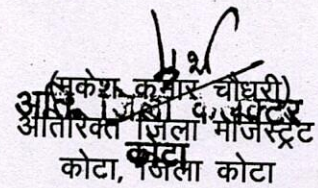 (मुकेश कुमार चौधरी)
अति. जिला कलक्टर
अतिरिक्त जिला मजिस्ट्रेट
कोटा
कोटा, जिला कोटा